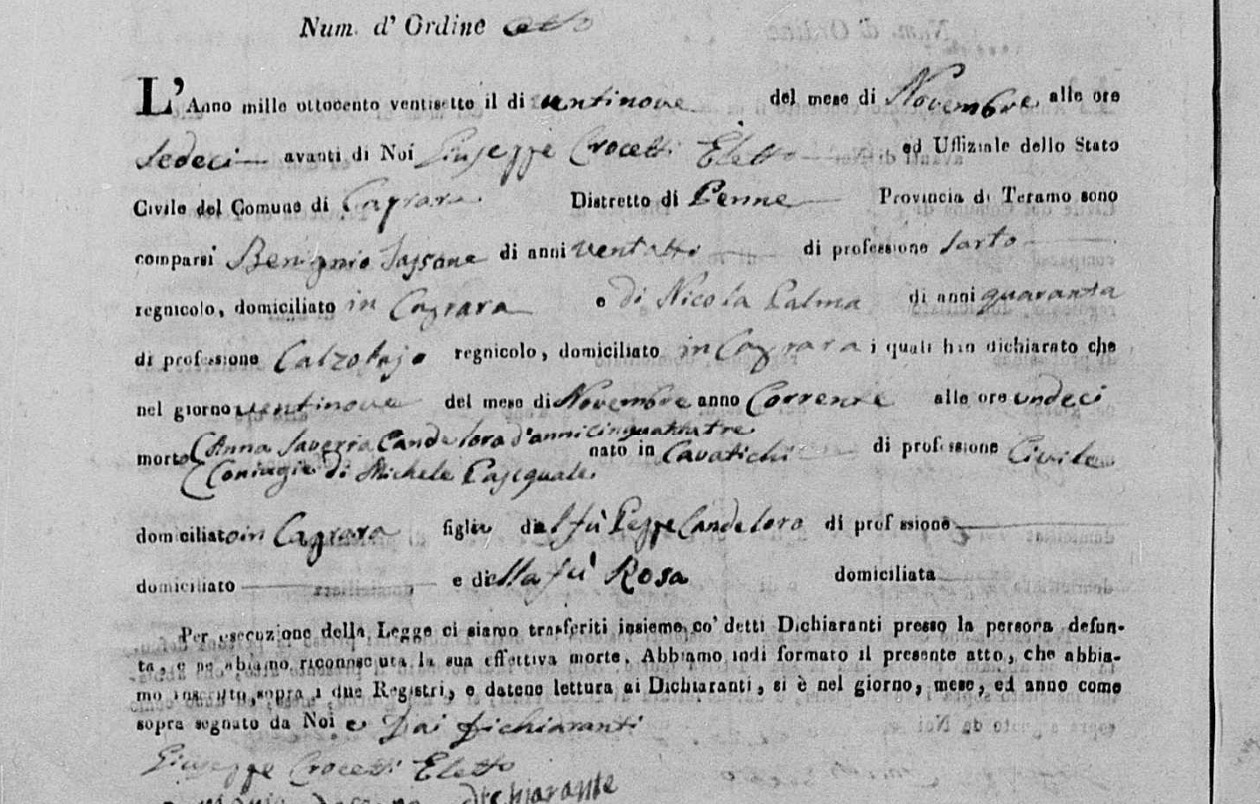 Num. d' Ordine otto
L'Anno mille ottocento ventisette il di ventinove del mese di Novembre alle ore
sedeci avanti di Noi Giuseppe Crocetti Eletto ed Uffiziale dello Stato
Civile del Comune di Caprara Distretto di Penne Provincia di Teramo sono
comparsi Benignio di anni di professione sarto
regnicolo, domiciliato in Caprara e di Nicola Palma di anni quaranta
di professione Calzolajo regnicolo, domiciliato in Caprara i quali han dichiarato che
nel giorno ventinove del mese di Novembre anno Corrente alle ore undeci
morto Anna Saveria Candelora d'anni cinquantatre nato in di professione Civile
Coniugie di Michele Pasquale
domiciliato in Caprara figlia del fù Peppe Candelora di professione
domiciliato e di lla fù Rosa domiciliata
Per esecuzione della Legge ci siamo trasferiti insieme co' detti Dichiaranti presso la persona defun-
ta, e ne abbiamo riconosciuta la sua effettiva morte. Abbiamo indi formato il presente atto, che abbia-
mo inscritto sopra i due Registri, e datene lettura ai Dichiaranti, si è nel giorno, mese, ed anno come
sopra segnato da Noi e Dai Dichiaranti
Giuseppe Crocetti Eletto
dichiarante